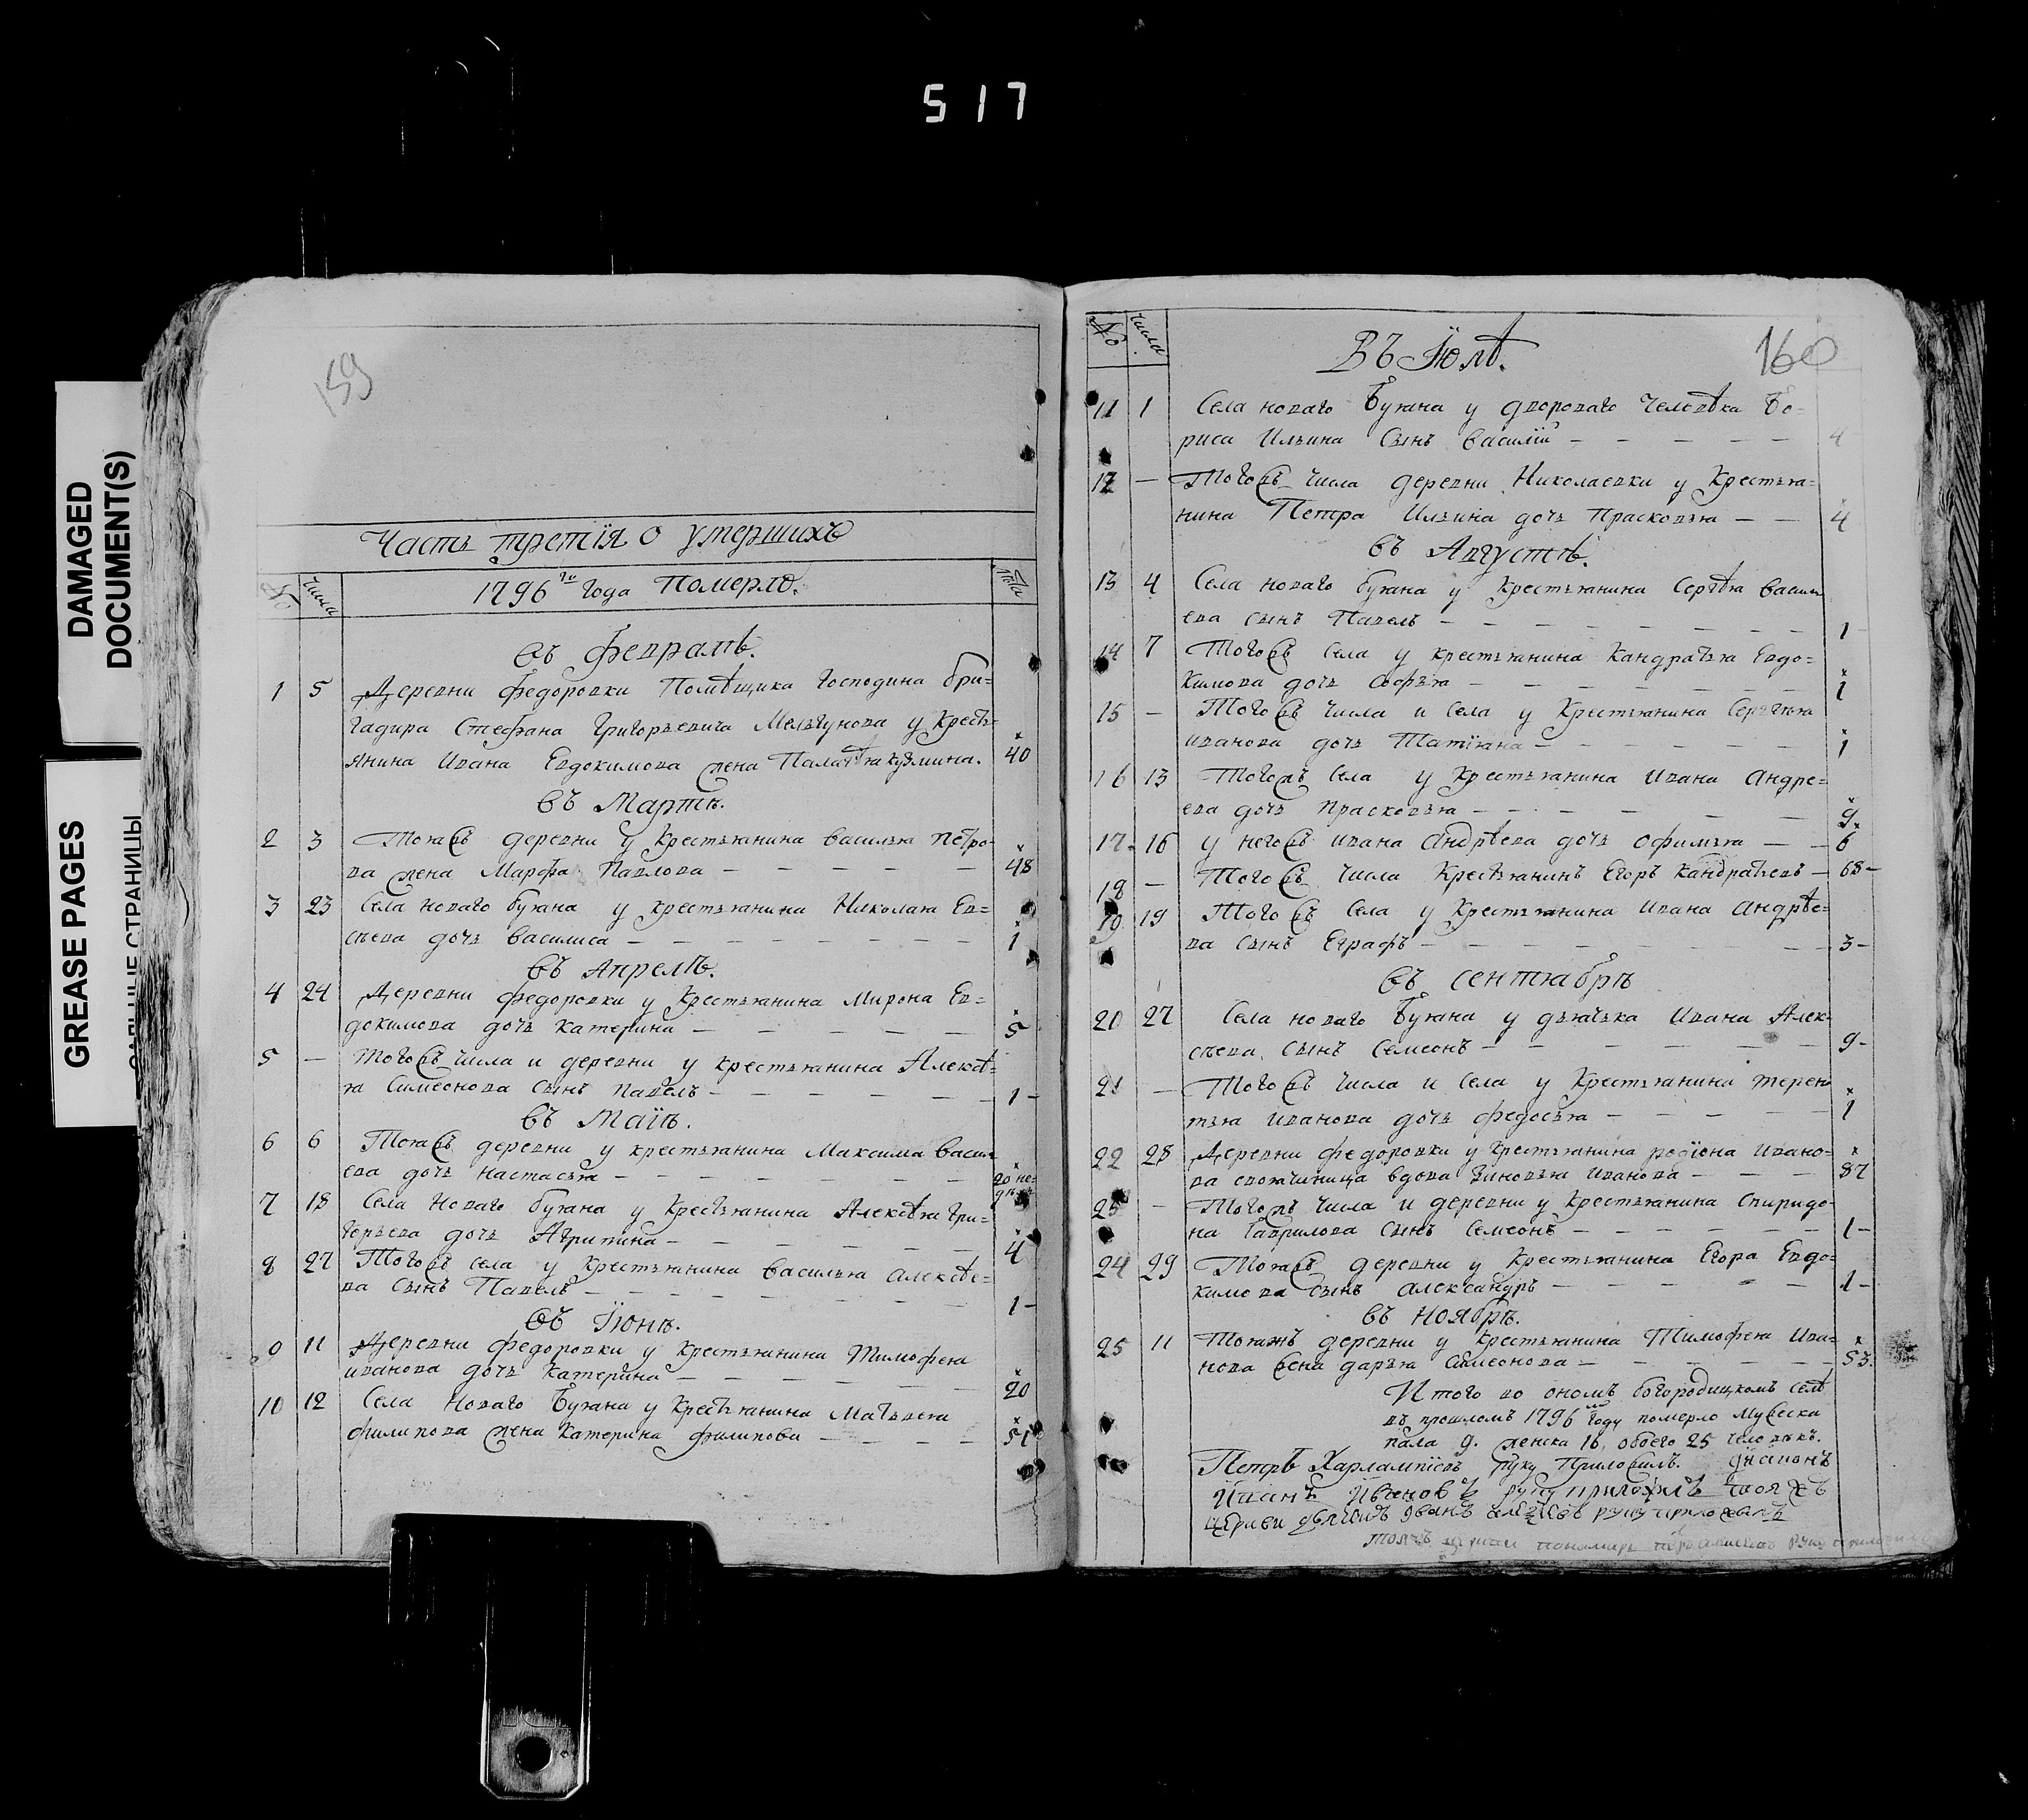 517
DAMAGED
DOCUMENT(S)
GREASE PAGES
159
Часть третїя о умершихъ
№ числа 1796го года померло. лѣта
въ февралѣ.
1 5 Деревни федоровки Помѣщика господина бри=
гадира Стефана григорьевича Мельгунова у крестъ=
янина Ивана Евдокимова жена Палагѣя кузмина. 40
въ Мартѣ.
2 3 Тояжъ деревни у крестьянина василья петро=
ва жена Марфа Павлова — 48
3 23 Села новаго буяна у крестьянина Николая Ев=
сѣева дочь василиса — 1
въ Апрелѣ.
4 24 Деревни федоровки у крестьянина Мирона Ев=
докимова дочь катерина — 5
5 — тогожъ числа и деревни у крестьянина Алексѣ=
я Симеонова сынъ павелъ — 1 —
въ Маїѣ.
6 6 Тояжъ деревни у крестьянина Максима васил
ева дочь настасья — 20 не=
7 18 Села новаго буяна у крестьянина Алексѣя гри=
горьева дочь Агрипина — 4
8 27 Тогожъ села у крестьянина василья алексѣе=
ва сынъ Павелъ — 1 —
въ Їюнѣ.
9 11 Деревни федоровки у крестьянина Тимофея
иванова дочь катерина — 20
10 12 Села новаго Буяна у крестьянина Матвея
филипова жена катерина филипова — 51
№ числа Въ Їюлѣ. 160
11 1 Села новаго Буяна у двороваго человѣка Бо-
риса Ильина сынъ василій — 4
12 — Тогожъ числа деревни Николаевки у крестья=
нина Петра Ильина дочь Прасковья — 4
въ Августѣ.
13 4 Села новаго буяна у крестьянина Сергѣя васил
ева сынъ Павелъ — 1 —
14 7 Тогожъ села у крестьянина кандратья Евдо=
кимова дочь софья — 1
15 — Тогожъ числа и села у крестьянина Сергѣя
иванова дочь Татїяна — 1
16 13 Тогожъ села у крестьянина ивана андре=
ева дочь прасковья — 9.
17. 16 у негожъ ивана андрѣева дочь офимья — 6
18 — Тогожъ числа крестьянинъ Егоръ кандратьевъ — 68 —
19 19 Тогожъ села у крестьянина ивана андрѣе=
ва сынъ Еграфъ — 3 —
въ сентябрѣ
20 27 Села новаго Буяна у дьячька Ивана Алек=
сѣева сынъ Семеонъ — 9 —
21 — Тогожъ числа и села у крестьянина терен
тья иванова дочь федосья — 1
22 28 Деревни федоровки у крестьянина родїона ивано=
ва своячиница вдова Зиновья иванова — 87
23 — Тогожъ числа и деревни у крестьянина спиридо=
на гаврилова сынъ Семеонъ — 1 —
24 29 Тояжъ деревни у крестьянина Егора Евдо=
кимова сынъ александръ — 1 —
въ ноябрѣ.
25 11 Тояжъ деревни у крестьянина Тимофея ива=
нова жена дарья Симеонова — 53.
Итого во ономъ богородицкомъ селѣ
въ прошломъ 1796мъ году померло мужеска
пола 9. женска 16, обоего 25 человѣкъ.
Петръ Харлампїевъ руку Приложилъ. дїаконъ
Иванъ Ивановъ руку приложилъ тояжъ
церкви дьячокъ иванъ алексѣевъ руку приложилъ
тояжъ церкви пономарь руку приложилъ